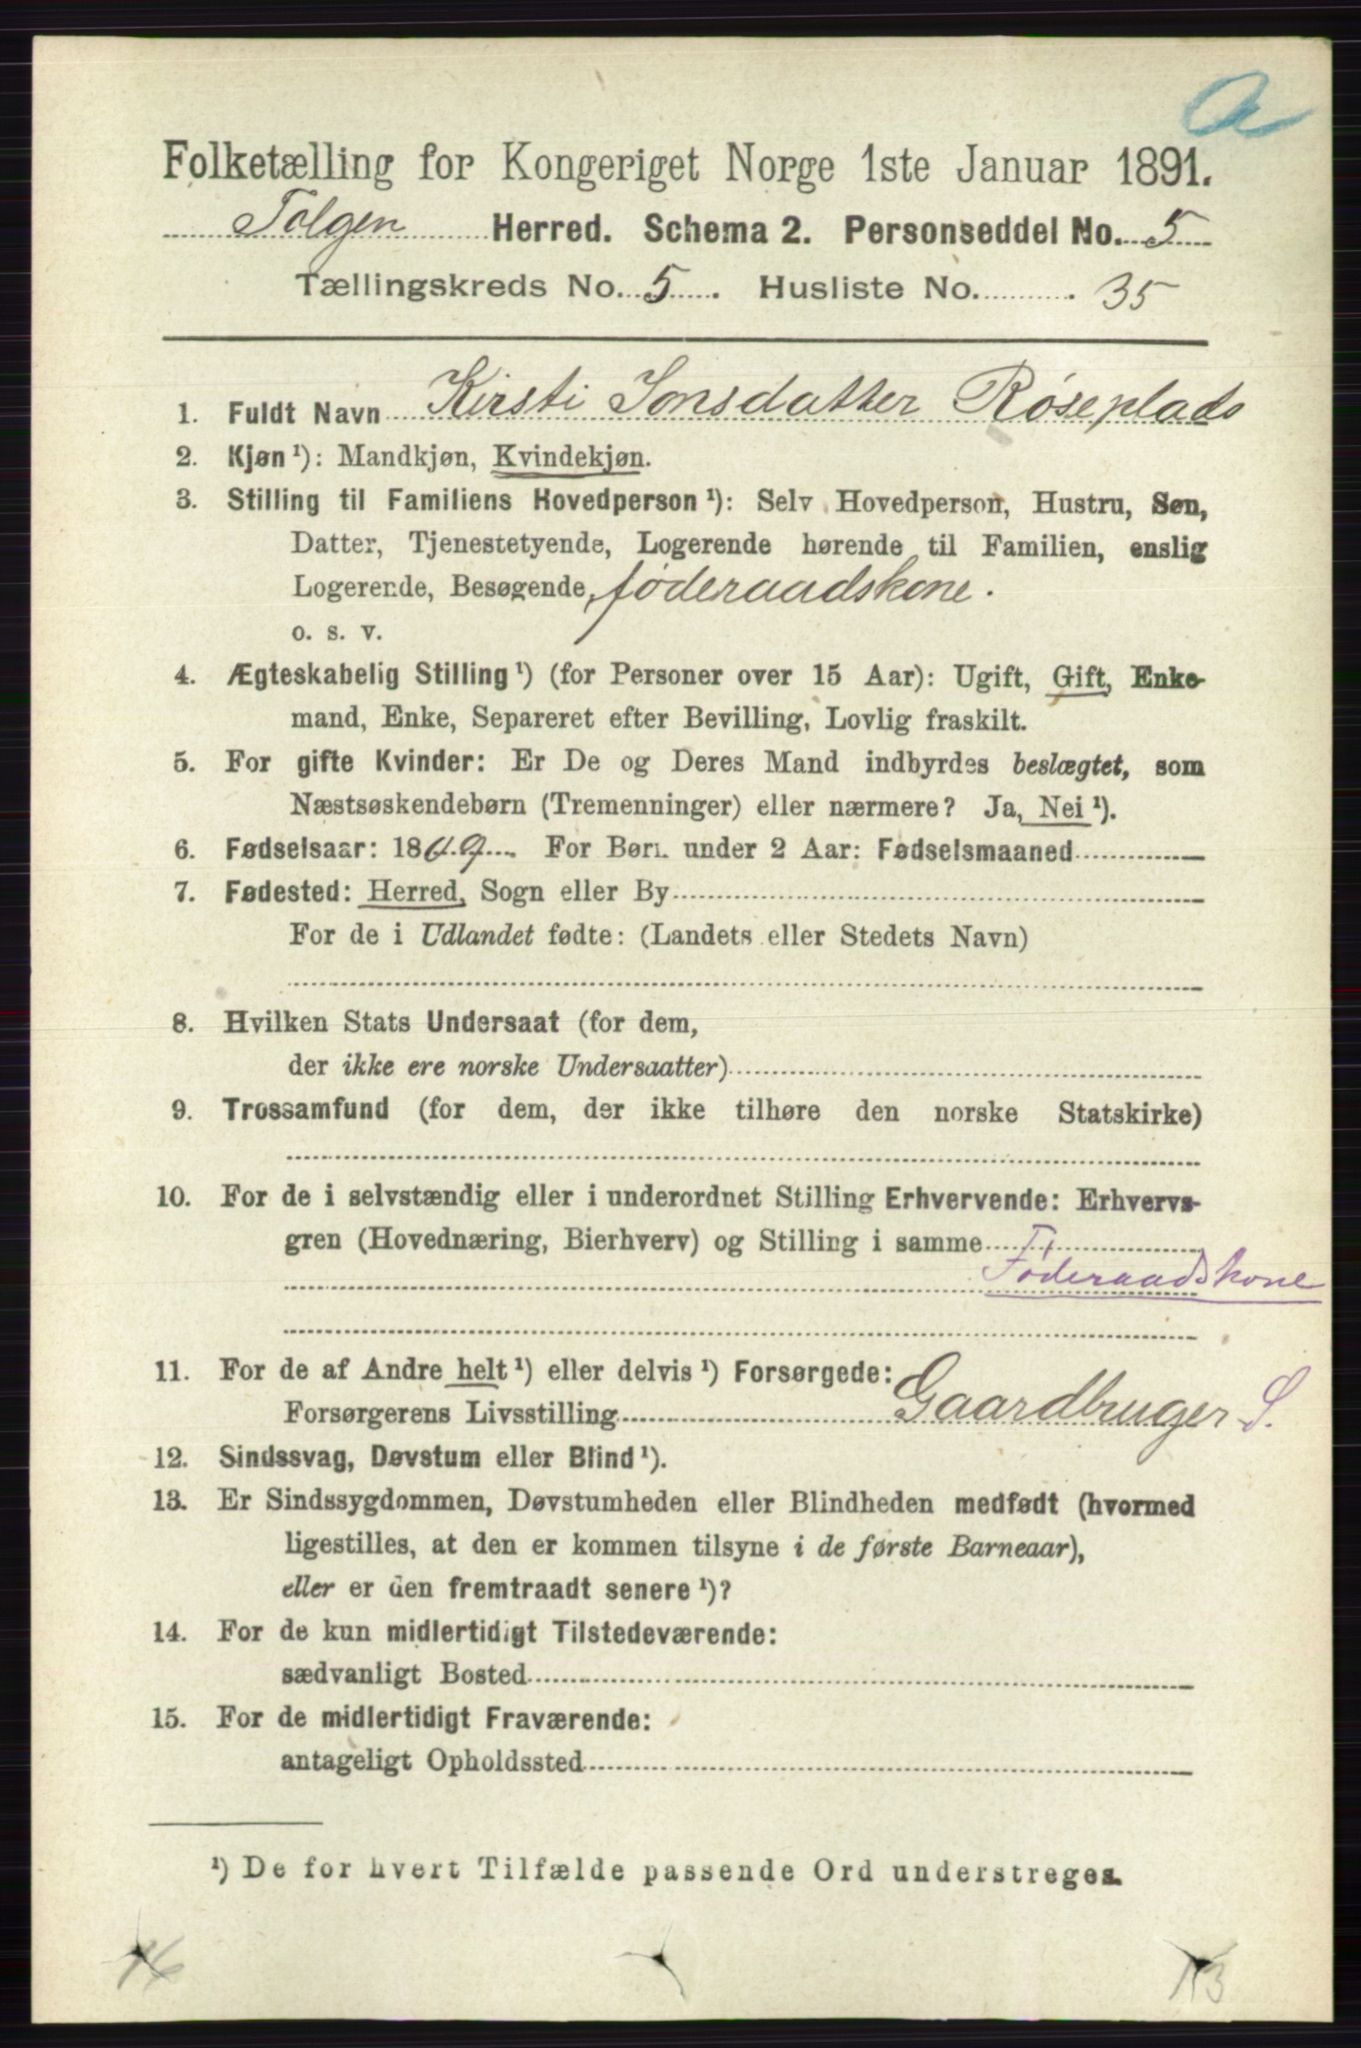 a
Folketælling for Kongeriget Norge 1ste Januar 1891.
Tolgen Herred. Schema 2. Personseddel No. 5
Tællingskreds No. 5. Husliste No. 35
1. Fuldt Navn Kirsti Jonsdatter Røseplads
2. Kjøn ¹): Mandkjøn, Kvindekjøn.
3. Stilling til Familiens Hovedperson ¹): Selv Hovedperson, Hustru, Søn,
Datter, Tjenestetyende, Logerende hørende til Familien, enslig
Logerende, Besøgende, føderaadskone.
o. s. v.
4. Ægteskabelig Stilling ¹) (for Personer over 15 Aar): Ugift, Gift, Enke-
mand, Enke, Separeret efter Bevilling, Lovlig fraskilt.
5. For gifte Kvinder: Er De og Deres Mand indbyrdes beslægtet, som
Næstsøskendebørn (Tremenninger) eller nærmere? Ja, Nei ¹).
6. Fødselsaar: 18 For Børn under 2 Aar: Fødselsmaaned
7. Fødested: Herred, Sogn eller By
For de i Udlandet fødte: (Landets eller Stedets Navn)
8. Hvilken Stats Undersaat (for dem,
der ikke ere norske Undersaatter)
9. Trossamfund (for dem, der ikke tilhøre den norske Statskirke)
10. For de i selvstændig eller i underordnet Stilling Erhvervende: Erhvervs-
gren (Hovednæring, Bierhverv) og Stilling i samme
Føderaadskone
11. For de af Andre helt ¹) eller delvis ¹) Forsørgede:
Forsørgerens Livsstilling Gaardbruger S.
12. Sindssvag, Døvstum eller Blind ¹).
13. Er Sindssygdommen, Døvstumheden eller Blindheden medfødt (hvormed
ligestilles, at den er kommen tilsyne i de første Barneaar),
eller er den fremtraadt senere ¹)?
14. For de kun midlertidigt Tilstedeværende:
sædvanligt Bosted
15. For de midlertidigt Fraværende:
antageligt Opholdssted
¹) De for hvert Tilfælde passende Ord understreges.